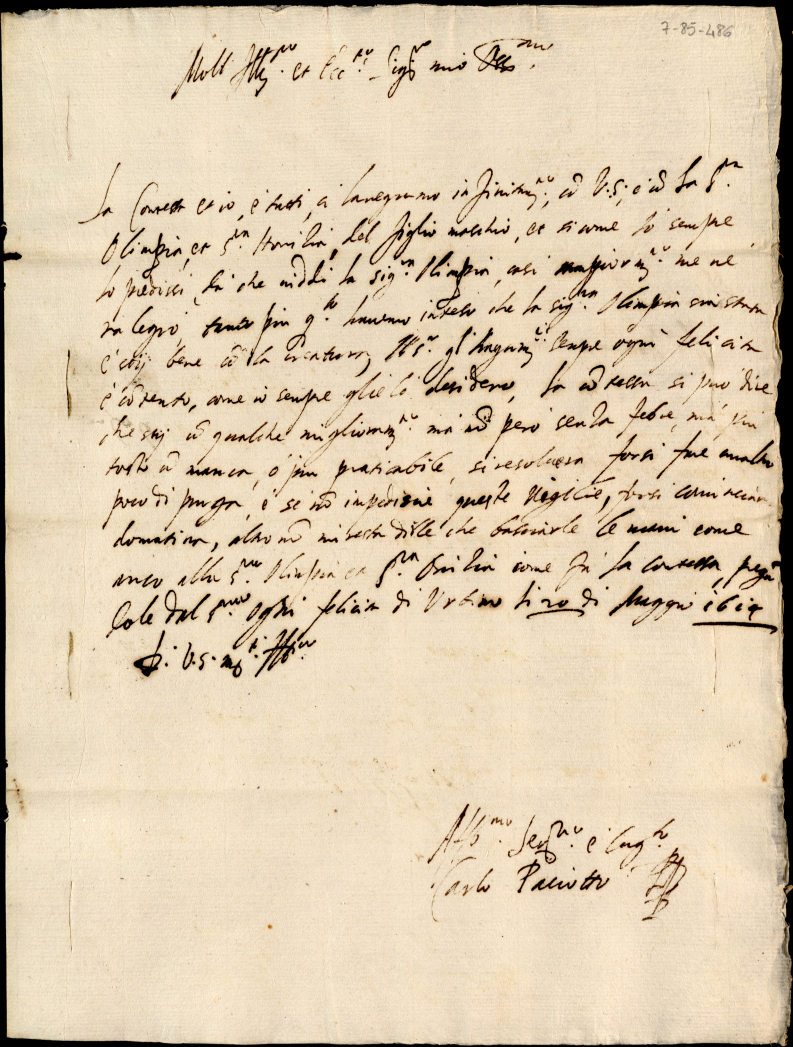 7-85-486
Molt Ill.re et Ecc.te Sig.r mio Oss.mo
La Contessa et io, e tutti, ci ralegramo infinitam.te, cō V.S., e cō la S.ra
Olimpia, et S.ra Hortitia, del figlio maschio, et si come io sempre
lo predissi, da che viddi la sig.ra Olimpia, così maggiorm.te me ne
ralegro, tanto più q.to havemo inteso che la sig.ra Olimpia
bene cō la creatura, sempre ogni felicità
e cōtento, come io sempre gli lo desidero, la cōtessa si può dire
che stij cō qualche miglioram.to ma nō però senza febre, ma più
tosto cō manca, o più praticabile, si resolverà forsi fare
poco di purga, e se nō impedisce queste Vigilie, forsi cominciarà
domatina, altro nō mi resta dirle che basciarle le mani come
anco alla S.ra Olimpia et S.ra come fa la contessa, prega
dole dal S.re ogni felicità di Urbino li 20 di Maggio 1614
D. V.S. m.to Ill.re
Aff.mo Ser.re e Cug.no
Carlo Paciotto